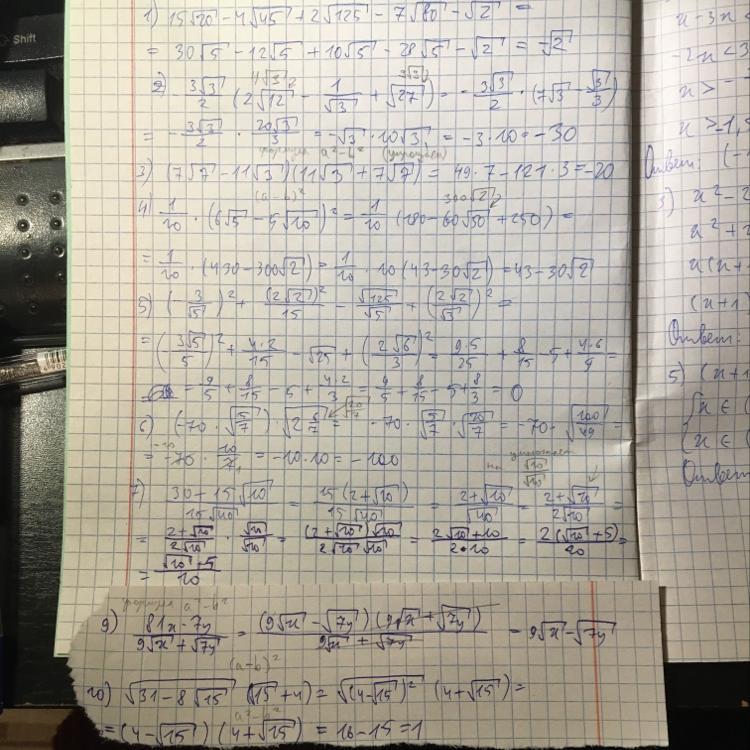 Shift
1) 15√20 - 4√45 + 2√125 - 7√80 - √2 =
= 30√5 - 12√5 + 10√5 - 28√5 - √2 = -√2
4√3 3√3
2) - 3√3/2 (2√12 - 1/√3 + √27) = - 3√3/2 · (7√3 - √3/3)
= - 3√3/2 · 20√3/3 = -√3 · 10√3 = -3·10 = -30
формула a²-b² (умножаем)
3) (7√7 - 11√3)(11√3 + 7√7) = 49·7 - 121·3 = -20
(a-b)² 300√2
4) 1/10 · (6√5 - 5√10)² = 1/10 (180 - 60√50 + 250) =
= 1/10 · (430 - 300√2) = 1/10 · 10 (43 - 30√2) = 43 - 30√2
5) (- 3/√5)² + (2√2)²/15 - √125/√5 + (2√2/√3)² =
= (- 3√5/5)² + 4·2/15 - √25 + (2√6/3)² = 9·5/25 + 8/15 - 5 + 4·6/9 =
= 9/5 + 8/15 - 5 + 4·2/3 = 9/5 + 8/15 - 5 + 8/3 = 0
6) (-70 · √5/7) · √2 6/7 = -70 · √5/7 · √20/7 = -70 · √100/49 =
= -70 · 10/7 = -10·10 = -100
7) 30 + 15√10/15√40 = 15(2 + √10)/15√40 = 2 + √10/√40 = 2 + √10/2√10 =
= 2 + √10/2√10 · √10/√10 = (2 + √10)√10/2√10 √10 = 2√10 + 10/2·10 = 2(√10 + 5)/20 =
= √10 + 5/10
формула a²-b²
9) 81x - 7y/9√x + √7y = (9√x - √7y)(9√x + √7y)/9√x + √7y = 9√x - √7y
(a-b)²
10) √31 - 8√15 (√15 + 4) = √(4 - √15)² (4 + √15) =
a²-b²
= (4 - √15)(4 + √15) = 16 - 15 = 1
-2x < 3
x >
Ответ:
3)
Ответ:
5) (x+1
x ∈ (
x ∈ (
Ответ